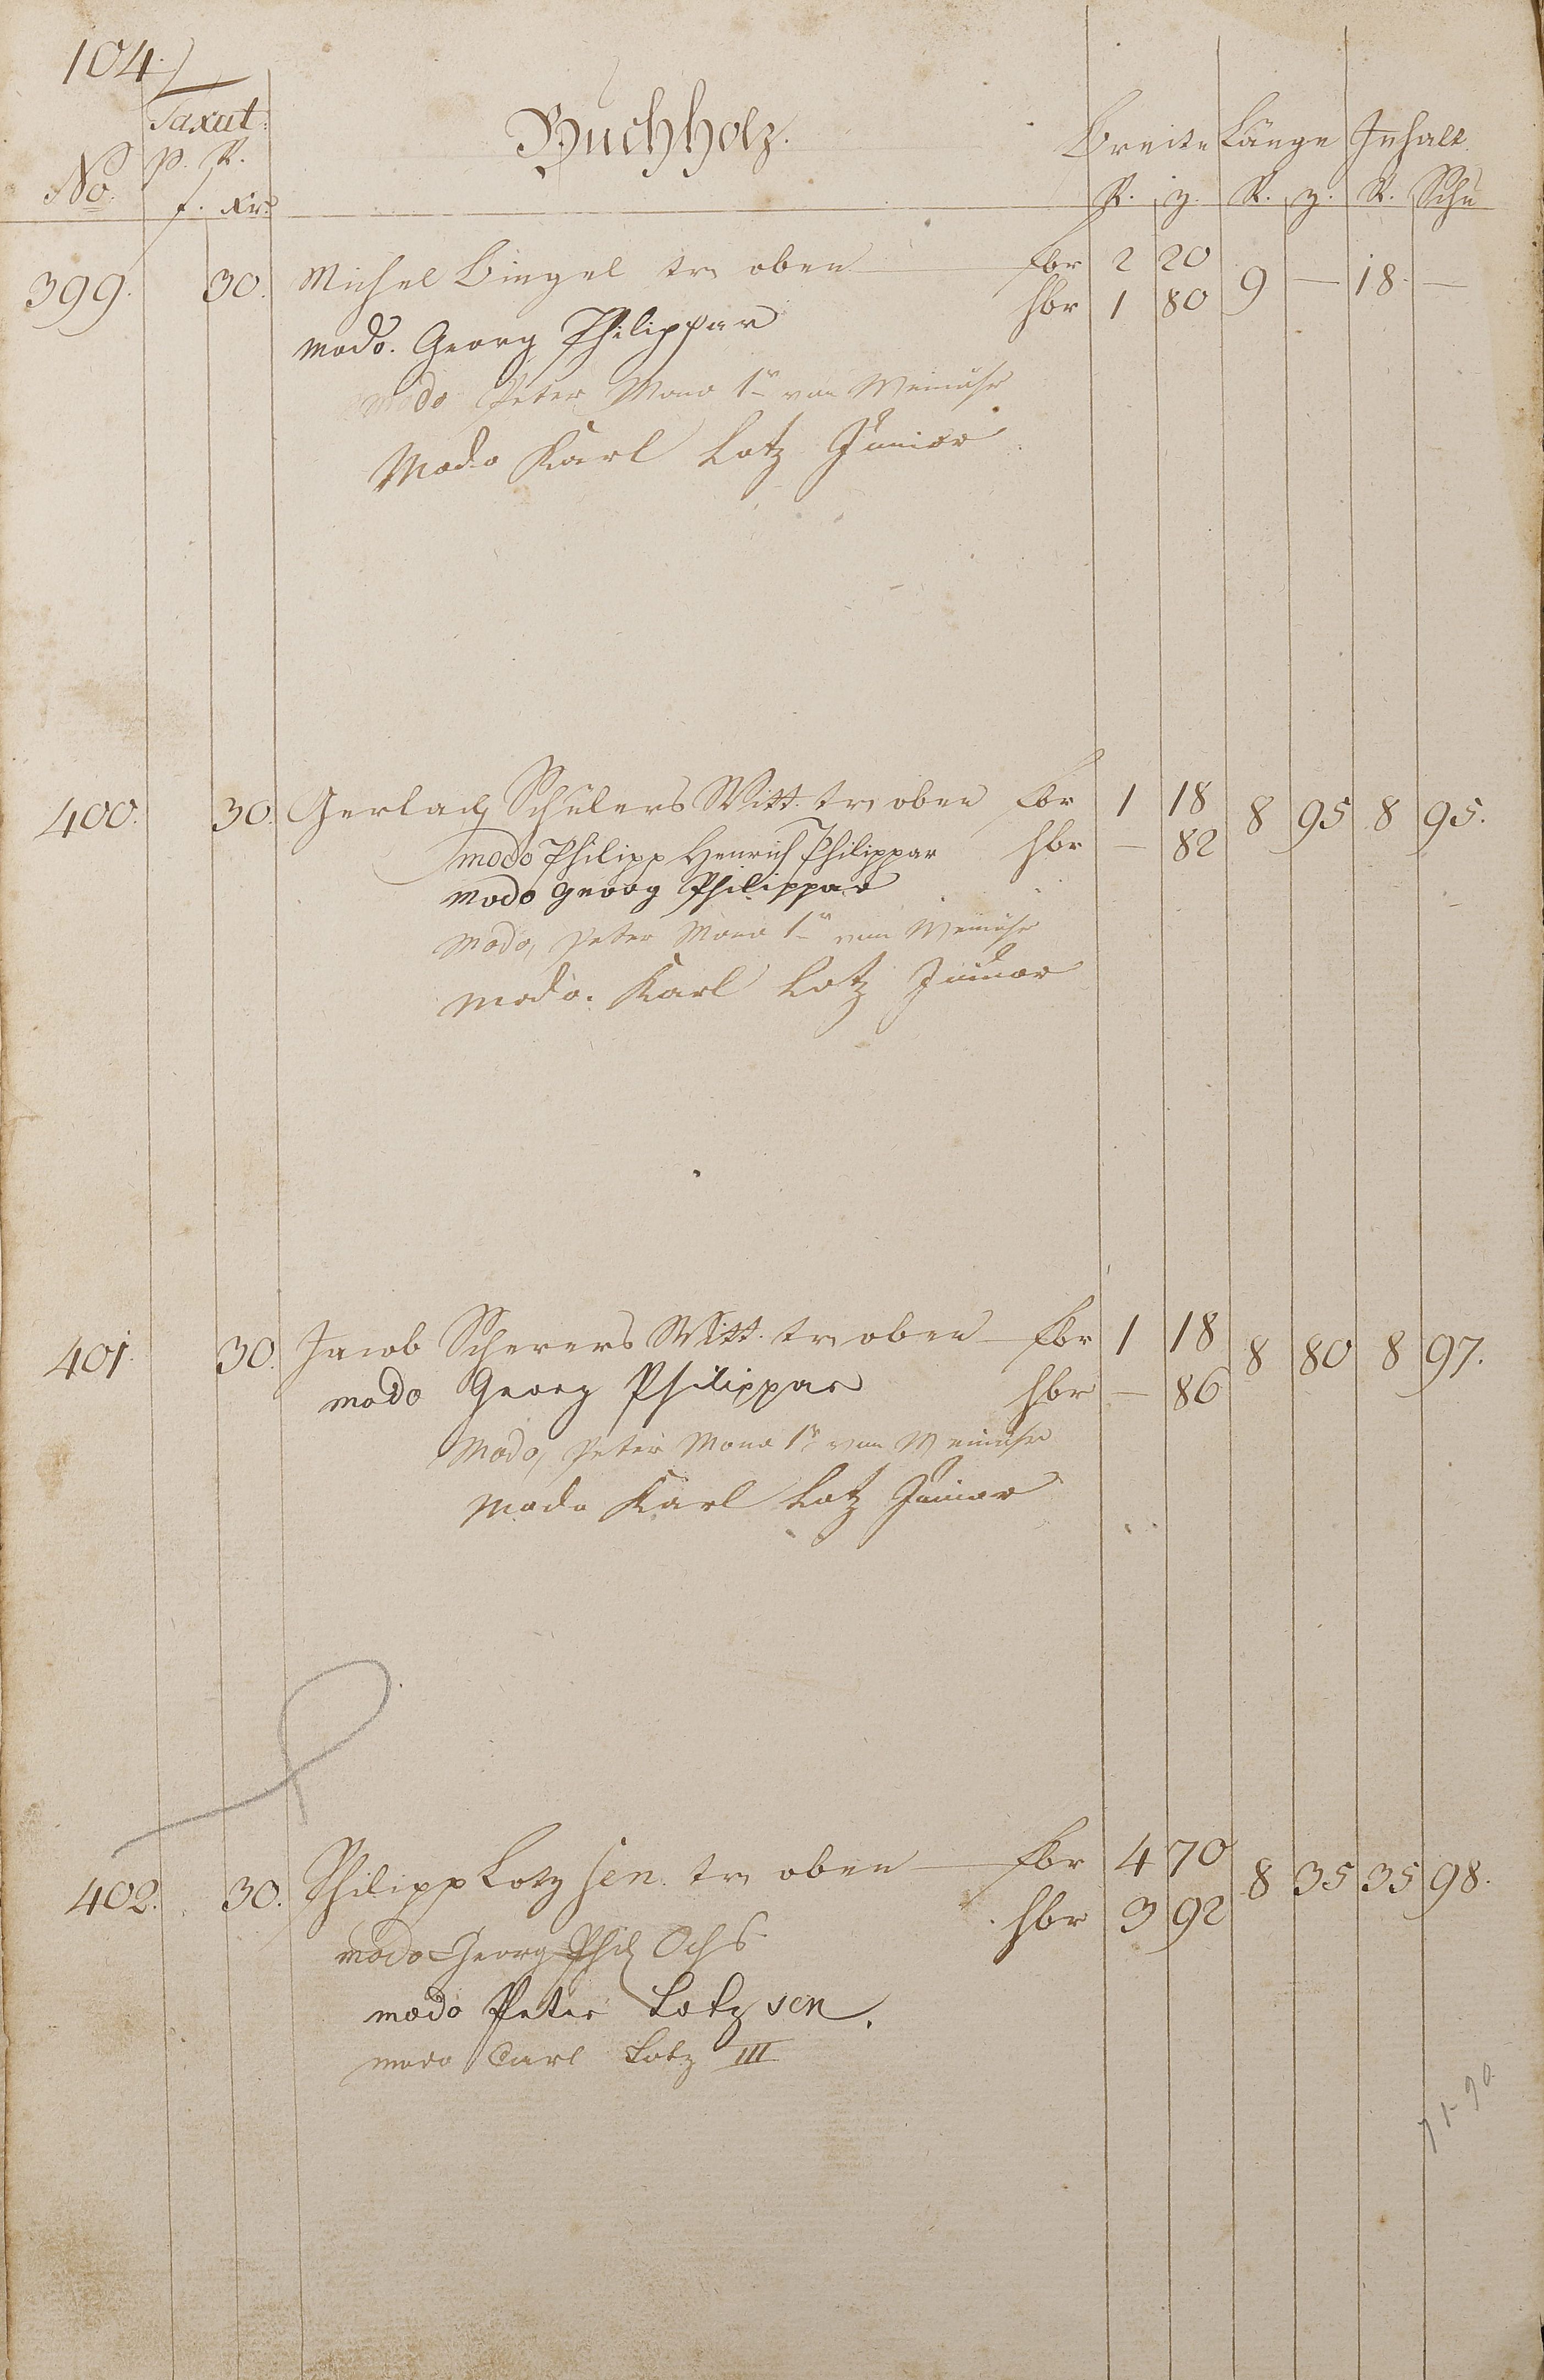 104.
Taxat:
No. p. R. f. Xr. Buchholz. Breite Länge Inhalt
R. z. R. z. R. Schu
399. 30. Michel Bingel tr oben fbr 2 20 9 — 18. —
hbr 1 80
modo. Georg Philippar
modo Peter Mono 1r von Weinähr
Modo Karl Lotz Junior
400. 30. Gerlach Schülers Witt. tr oben fbr 1 18 8 95 8 95.
modo Philipp Henrich Philippar hbr — 82
modo Georg Philippar
modo, Peter Mono 1r von Weinähr
modo. Karl Lotz Junior
401. 30. Jacob Scherers Witt. tr oben fbr 1 18 8 80 8 97.
modo Georg Philippar hbr — 86
Modo, Peter Mono 1r von Weinähr
Modo Karl Lotz Junior
402. 30. Philipp Lotz sen. tr oben fbr 4 70 8 35 35 98.
hbr 3 92
modo Georg Phil Ochs
modo Peter Lotz sen.
modo Carl Lotz III